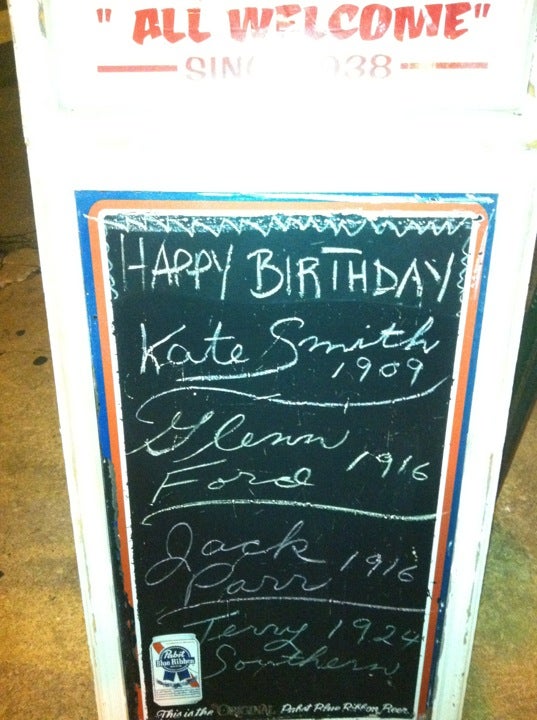 " ALL WELCOME"
SIN 938
HAPPY BIRTHDAY
Kate Smith
1909
Glenn
Ford 1916
Jack
Parr 1916
Terry 1924
Southern
Pabst
Blue Ribbon
This is the ORIGINAL Pabst Blue Ribbon Beer